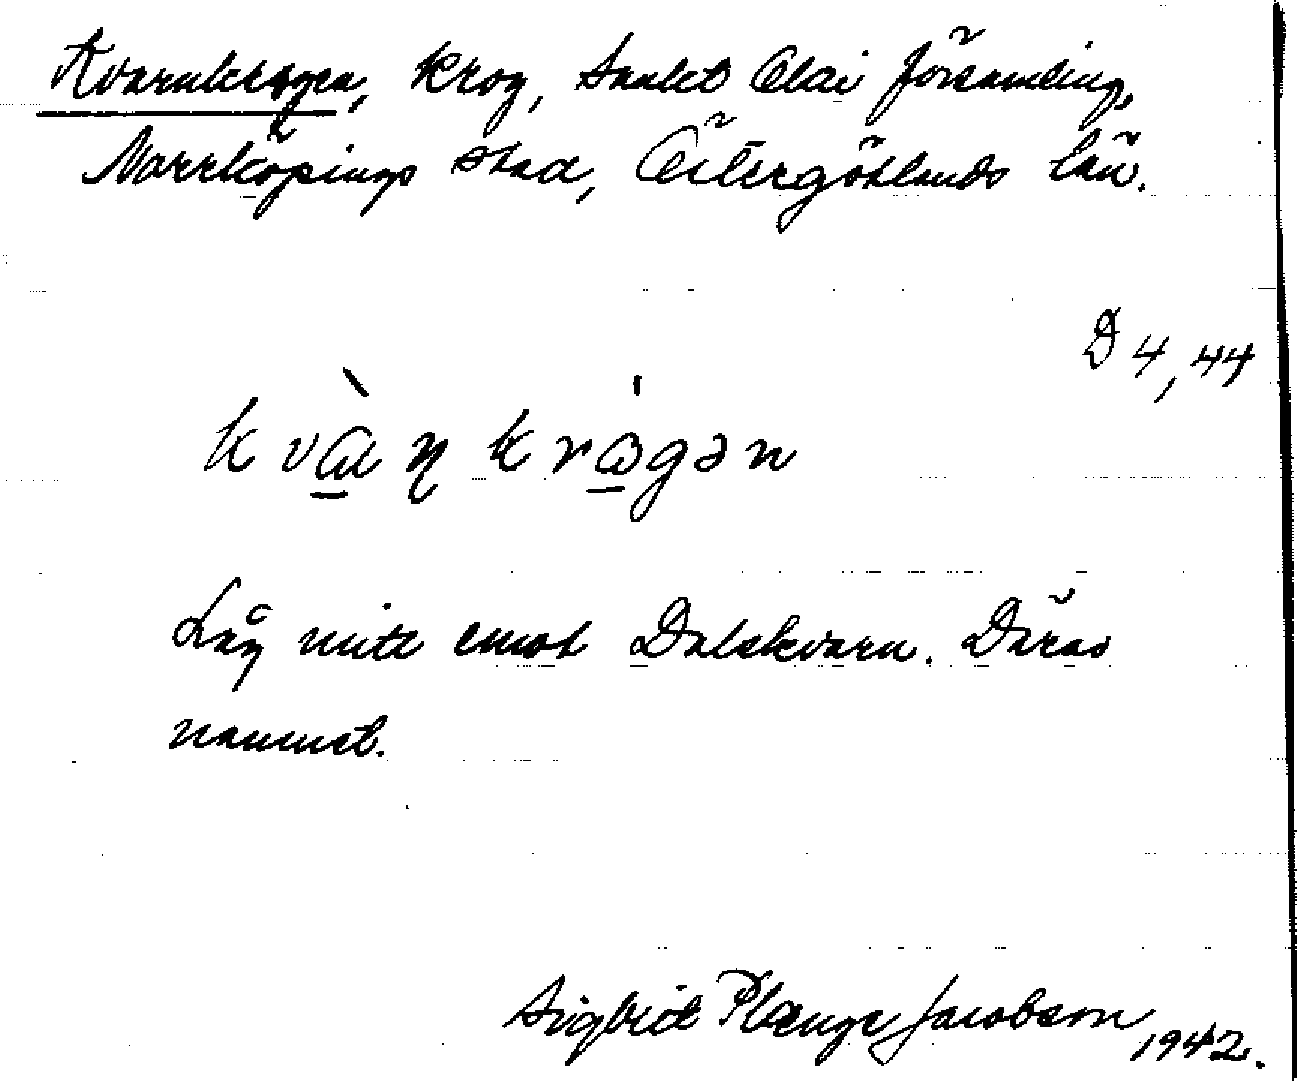 Kvarnkrogen, krog, Sankt Olai församling,
Norrköpings stad, Östergötlands län.
D 4, 44
kvὰɳkrɷ́gən
Låg mitt emot Dalskvarn. Därav
namnet.
Sigbrit Plænge Jacobson, 1942.